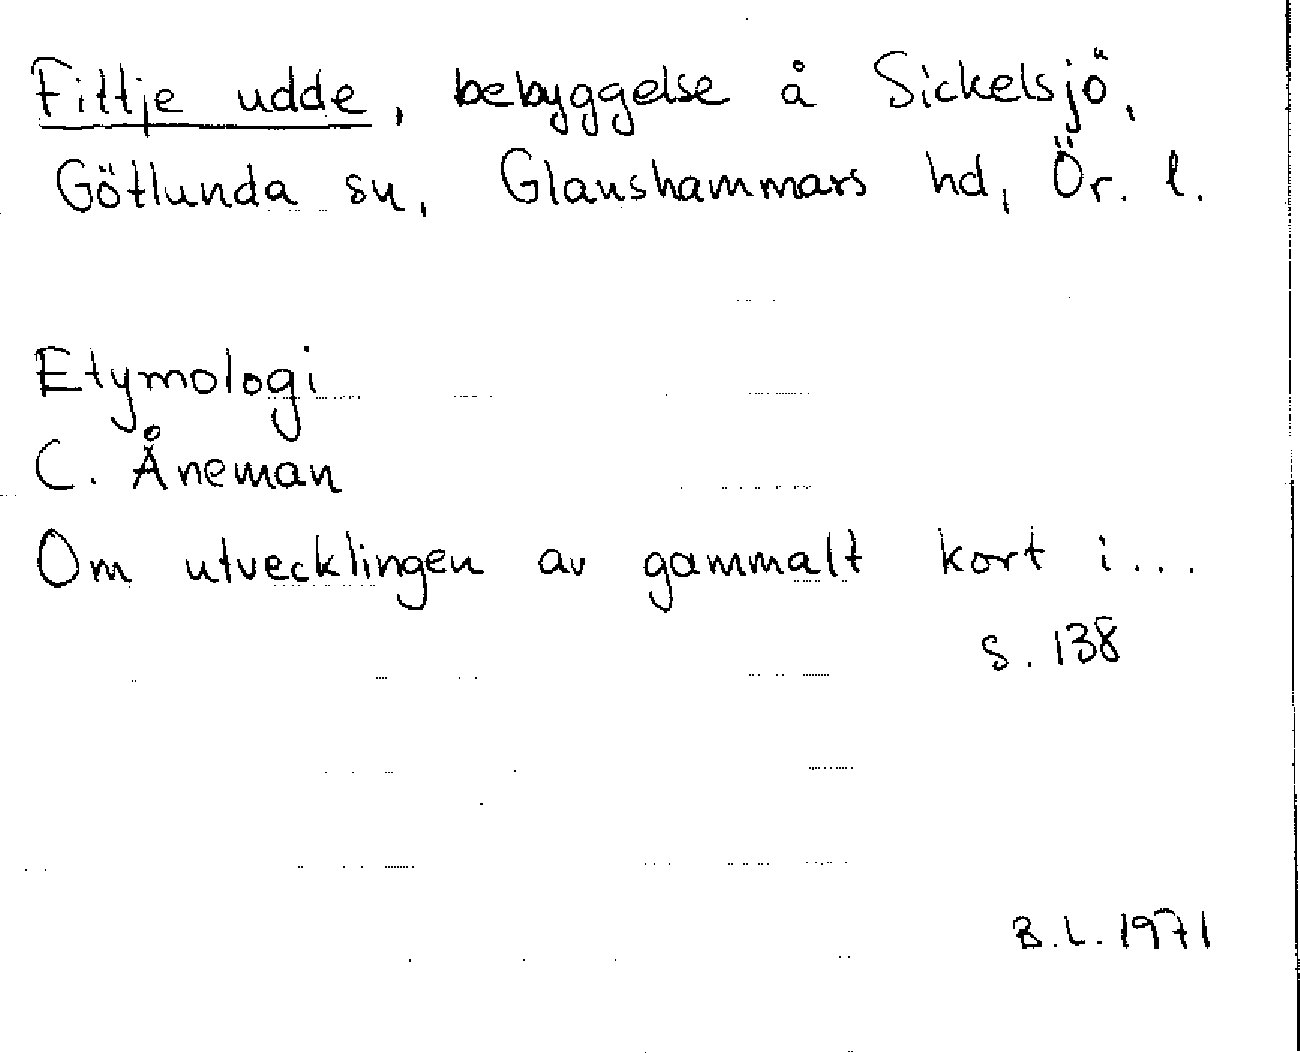 Fittje udde, bebyggelse å Sickelsjö,
Götlunda sn, Glanshammars hd, Ör. l.
Etymologi
C. Åneman
Om utvecklingen av gammalt kort i...
s. 138
B.L. 1971